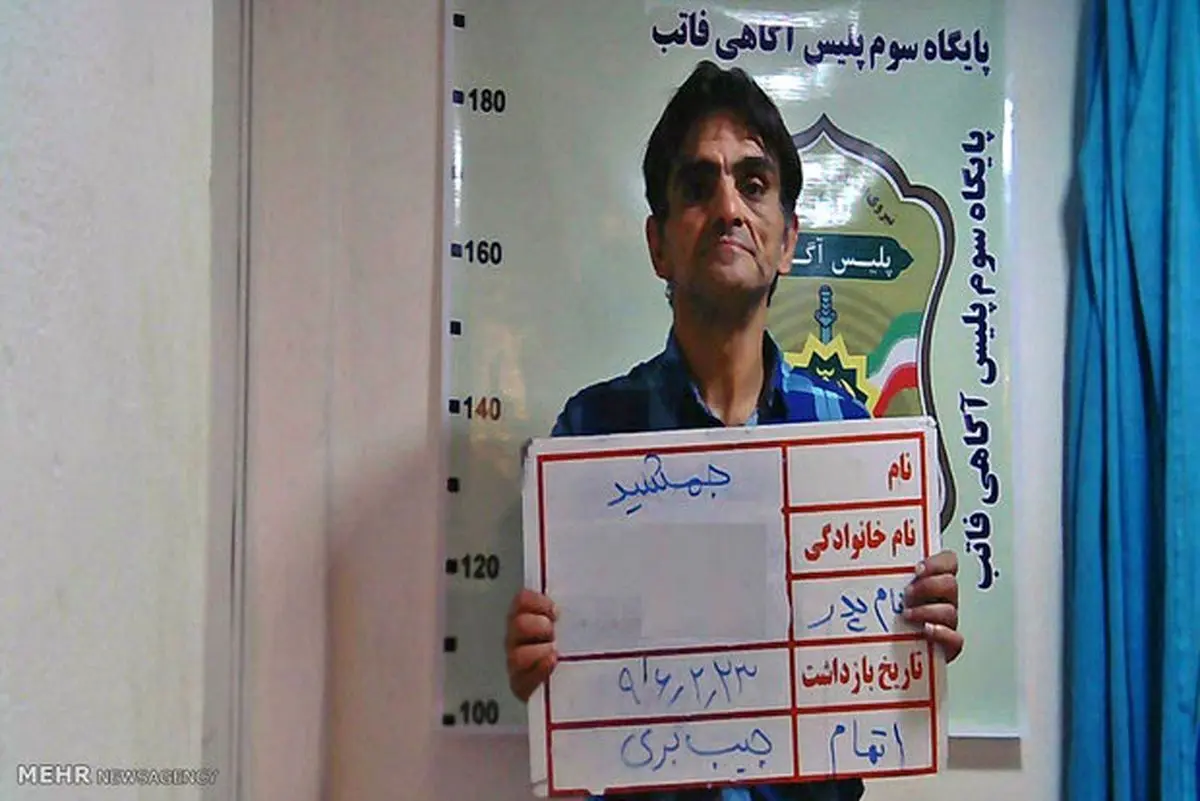 پایگاه سوم پلیس آگاهی فاتب
پایگاه سوم پلیس آگاهی فاتب
180
160
140
120
100
نیروی
پلیس آگ
نام جمشید
نام خانوادگی
نام پدر
تاریخ بازداشت ۹۶٫۲٫۲۳
اتهام جیب بری
MEHR NEWSAGENCY